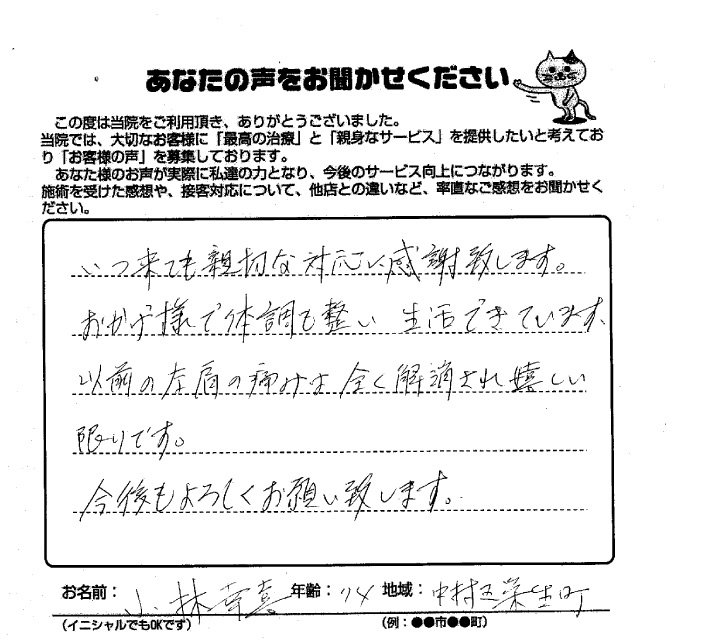 あなたの声をお聞かせください
この度は当院をご利用頂き、ありがとうございました。
当院では、大切なお客様に「最高の治療」と「親身なサービス」を提供したいと考えてお
り「お客様の声」を募集しております。
あなた様のお声が実際に私達の力となり、今後のサービス向上につながります。
施術を受けた感想や、接客対応について、他店との違いなど、率直なご感想をお聞かせく
ださい。
いつ来ても親切な対応に感謝致します。
おかげ様で体調も整い 生活できています、
以前の左肩の痛みは全く解消され嬉しい
限りです。
今後もよろしくお願い致します。
お名前： 小林幸喜 年齢：74 地域：中村区栄生町
（イニシャルでもOKです） （例：●●市●●町）